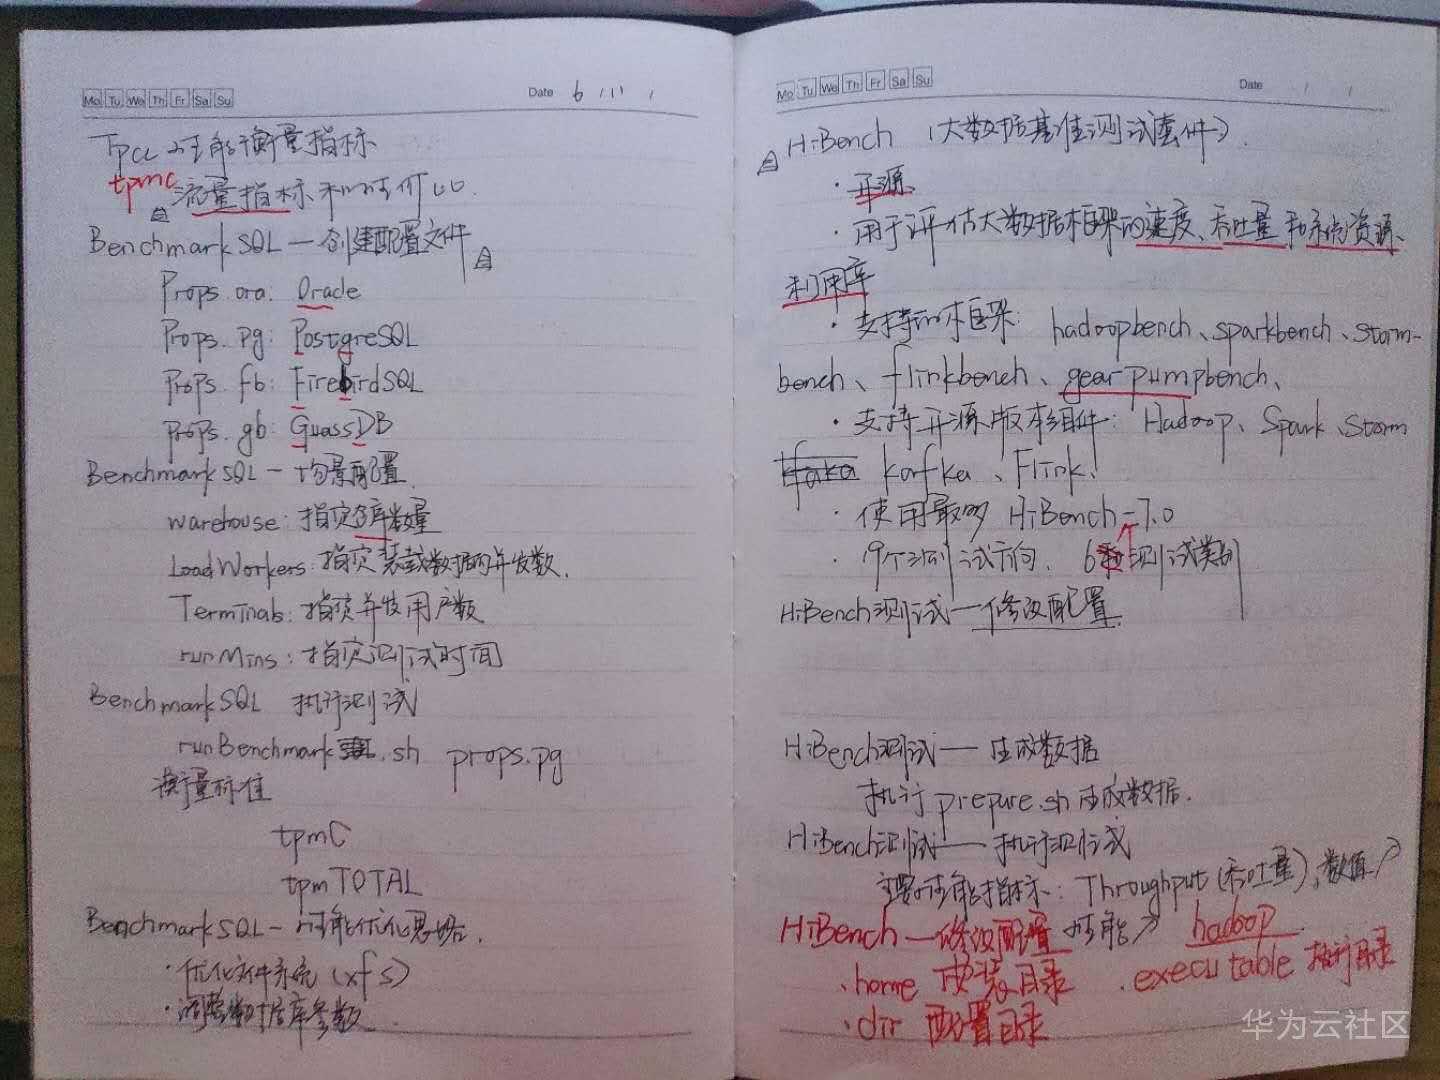 Mo Tu We Th Fr Sa Su
Date 6 / 11 /
Tpcc 性能衡量指标
tpmc 流量指标和性价比.
BenchmarkSQL — 创建配置文件
Props.ora: Oracle
Props.pg: PostgreSQL
Props.fb: FirebirdSQL
props.gb: GuassDB
BenchmarkSQL — 场景配置.
warehouse: 指定仓库数量
LoadWorkers: 指定装载数据的并发数.
Terminals: 指定并发用户数
runMins: 指定测试时间
BenchmarkSQL 执行测试
runBenchmark.sh props.pg
衡量标准
tpmC
tpmTOTAL
BenchmarkSQL — 性能优化思路.
· 优化文件系统 (xfs)
· 调整数据库参数.
Mo Tu We Th Fr Sa Su
Date / /
HiBench (大数据基准测试套件).
· 开源.
· 用于评估大数据框架的速度、吞吐量和系统资源、
利用率
· 支持的框架: hadoopbench、sparkbench、storm-
bench、flinkbench、gearpumpbench、
· 支持开源版本组件: Hadoop、Spark、Storm
kafka、Flink、
· 使用最多 HiBench-7.0
· 19个测试方向. 6类测试类别
HiBench测试 — 修改配置.
HiBench测试 — 生成数据
执行 prepure.sh 生成数据.
HiBench测试 — 执行测试
主要性能指标: Throughput (吞吐量), 数值↗
HiBench — 修改配置 性能↗ hadoop
.home 安装目录 .executable 执行目录
.dir 配置目录
华为云社区